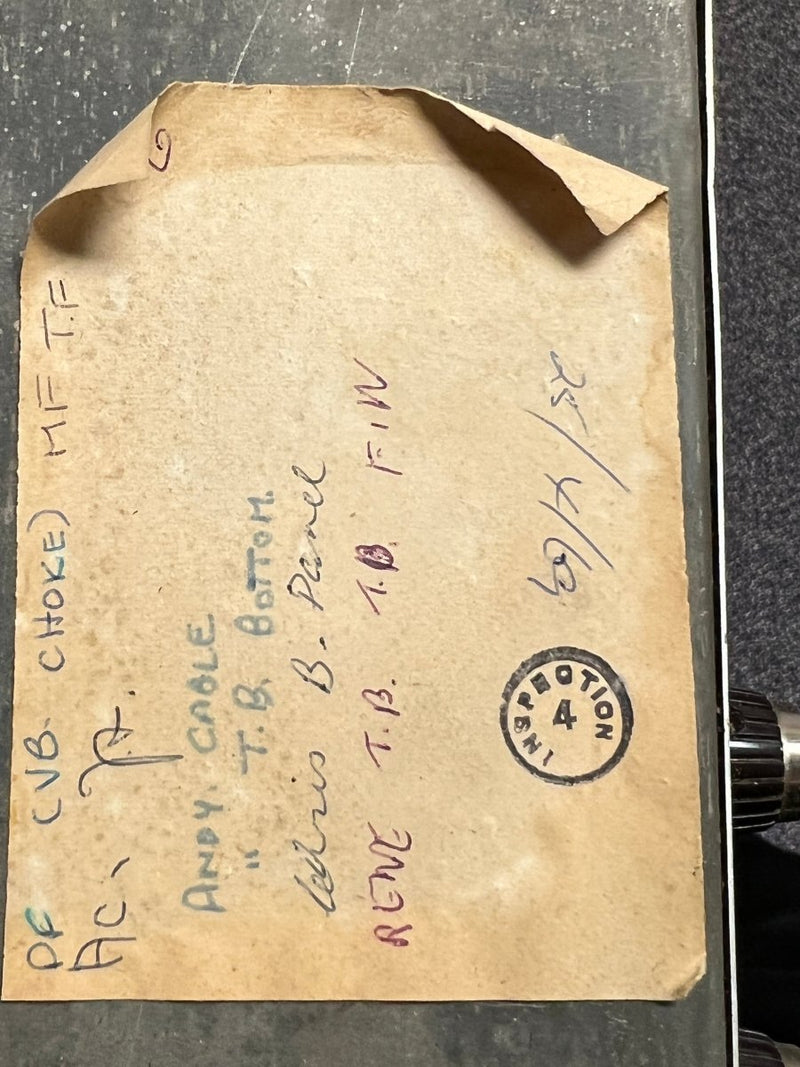 PF (VB. CHOKE) MF T.F
AC,
ANDY CABLE
" T.B. BOTTOM.
Chris B. Panel
RENE T.B. T.B. FIN
25/4/69
INSPECTION
4